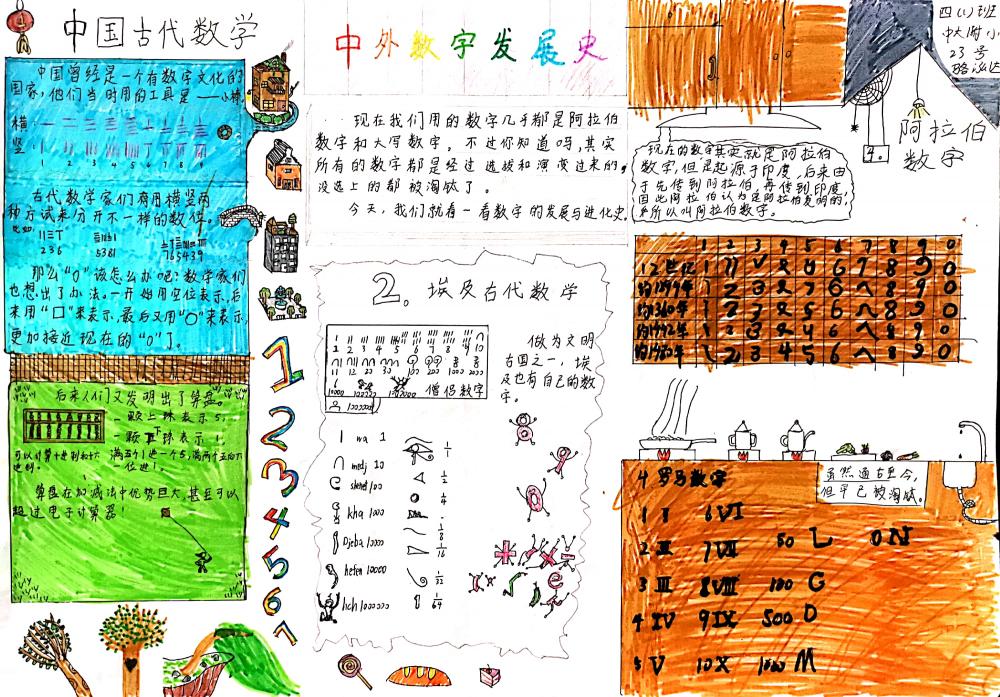 中国古代数学
中国曾经是一个有数字文化的
国家,他们当时用的工具是——小棒。
横:
竖:
1 2 3 4 5 6 7 8 9
古代数学家们商用横竖两
种方试来分开不一样的数位。
比如:
236 5381 765439
那么“0”该怎么办呢?数学家们
也想出了办法。一开始用空位表示,后
来用“口”来表示,最后又用“〇”来表示,
更加接近现在的“0”了。
后来人们又发明出了算盘。
一颗上珠表示5,
一颗下珠表示1,
满五个1进一个5,满两个五向前
一位进1。
算盘在加减法中优势巨大,甚至可以
超过电子计算器!
中外数字发展史
现在我们用的数字几乎都是阿拉伯
数字和大写数字,不过你知道吗,其实
所有的数字都是经过选拔和演变过来的,
没选上的都被淘汰了。
今天,我们就看一看数字的发展与进化史。
1
2
3
4
5
6
7
2。埃及古代数学
1 2 3 4 5 6 7 8 9 10
11 12 22 33 100 200 1000 2000
10000 100000
僧侣数字
1000000
做为文明
古国之一,埃
及也有自己的数
字。
wa 1
medj 10
shenet 100
kha 1000
Djeba 10000
hefen 100000
heh 1000000
1/2
1/4
1/8
1/16
1/32
1/64
四(1)班
中大附小
23号
1
阿拉伯
数字
现在的数字其实就是阿拉伯
数字,但是起源于印度,后来由
于先传到阿拉伯,再传到印度,
因此阿拉伯认为是阿拉伯发明的,
所以叫阿拉伯数字。
1 2 3 4 5 6 7 8 9 0
12世纪
约1360年
4 罗马数字
虽然通古至今,
但早已被淘汰。
6 VI
7 VII 50 L 0 N
3 III 8 VIII 100 G
4 IV 9 IX 500 D
5 V 10 X 1000 M